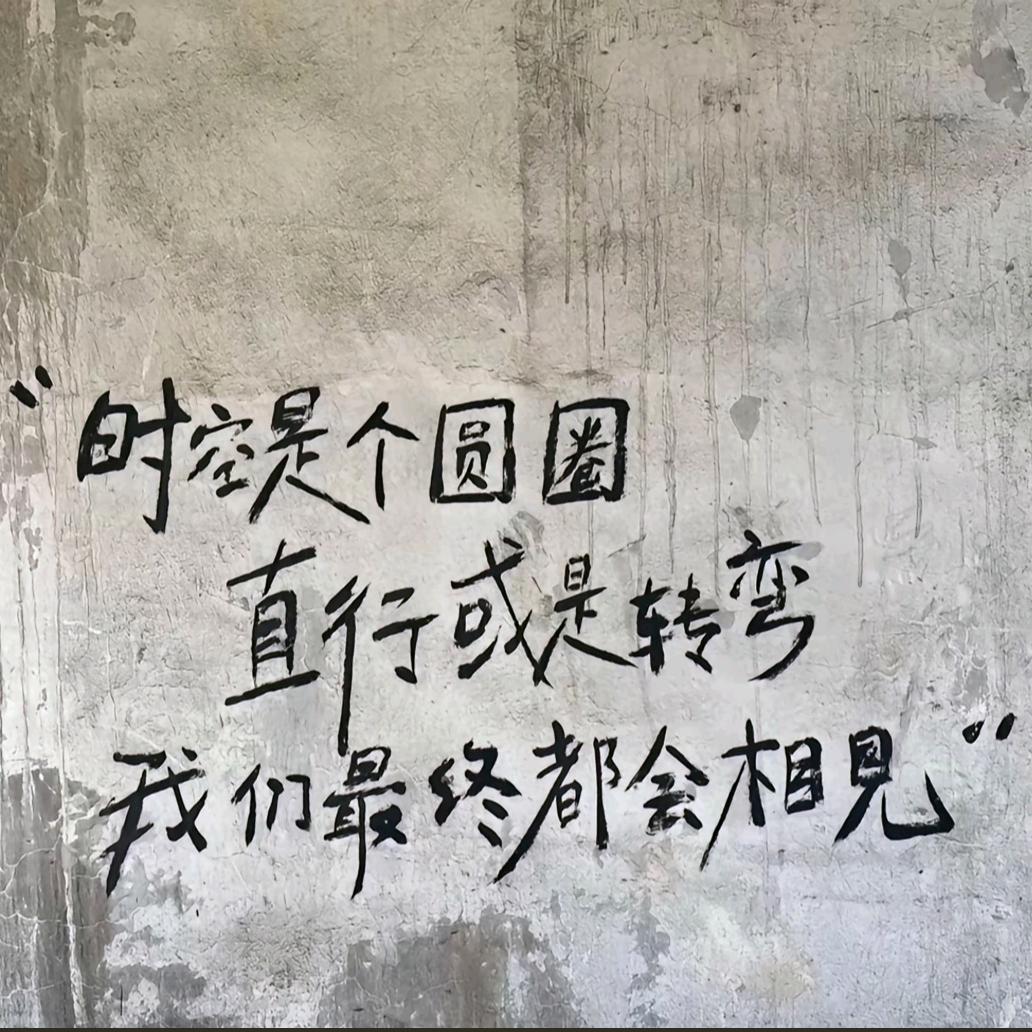 “时空是个圆圈
直行或是转弯
我们最终都会相见”